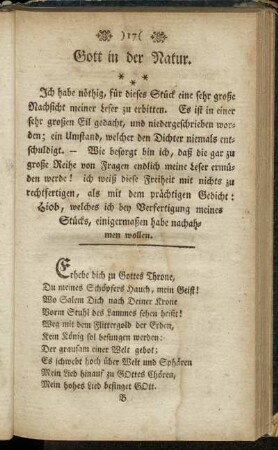 )17(
Gott in der Natur.
* * *
Ich habe nöthig, für dieses Stück eine sehr große
Nachsicht meiner Leser zu erbitten. Es ist in einer
sehr großen Eil gedacht, und niedergeschrieben wor-
den; ein Umstand, welcher den Dichter niemals ent-
schuldigt. — Wie besorgt bin ich, daß die gar zu
große Reihe von Fragen endlich meine Leser ermü-
den werde! ich weiß diese Freiheit mit nichts zu
rechtfertigen, als mit dem prächtigen Gedicht:
Hiob, welches ich bey Verfertigung meines
Stücks, einigermaßen habe nachah-
men wollen.
Erhebe dich zu Gottes Throne,
Du meines Schöpfers Hauch, mein Geist!
Wo Salem Dich nach Deiner Krone
Vorm Stuhl des Lammes sehen heißt!
Weg mit dem Flittergold der Erden,
Kein König sol besungen werden:
Der grausam einer Welt gebot;
Es schwebt hoch über Welt und Sphären
Mein Lied hinauf zu GOttes Chören,
Mein hohes Lied besinget GOtt.
B